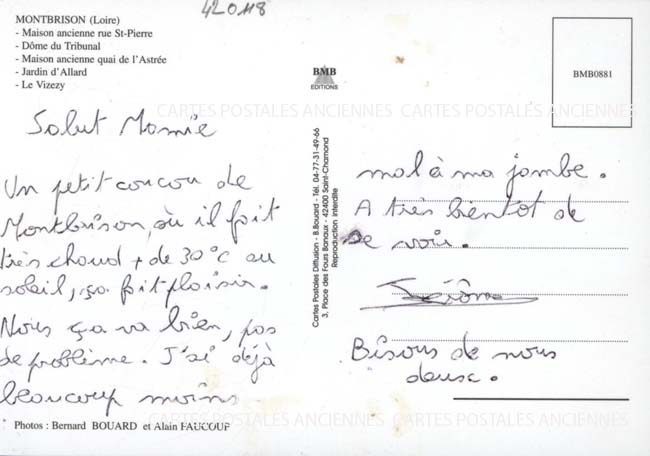 420118
MONTBRISON (Loire)
- Maison ancienne rue St-Pierre
- Dôme du Tribunal
- Maison ancienne quai de l'Astrée
- Jardin d'Allard
- Le Vizezy
Salut Mamie
Un petit coucou de
Montbrison, où il fait
très chaud + de 30°C au
soleil, ça fait plaisir.
Nous ça va bien, pas
de problème. J'ai déjà
beaucoup moins
Photos : Bernard BOUARD et Alain FAUCOUP
BMB
EDITIONS
Cartes Postales Diffusion - B.Bouard - Tél. 04-77-31-49-66
3, Place des Fours Banaux - 42400 Saint-Chamond
Reproduction interdite
BMB0881
mal à ma jambe.
A très bientôt de
se voir.
Jérôme
Bisous de nous
deux.
CARTES POSTALES ANCIENNES CARTES POSTALES ANCIENNES
CARTES POSTALES ANCIENNES CARTES POSTALES ANCIENNES